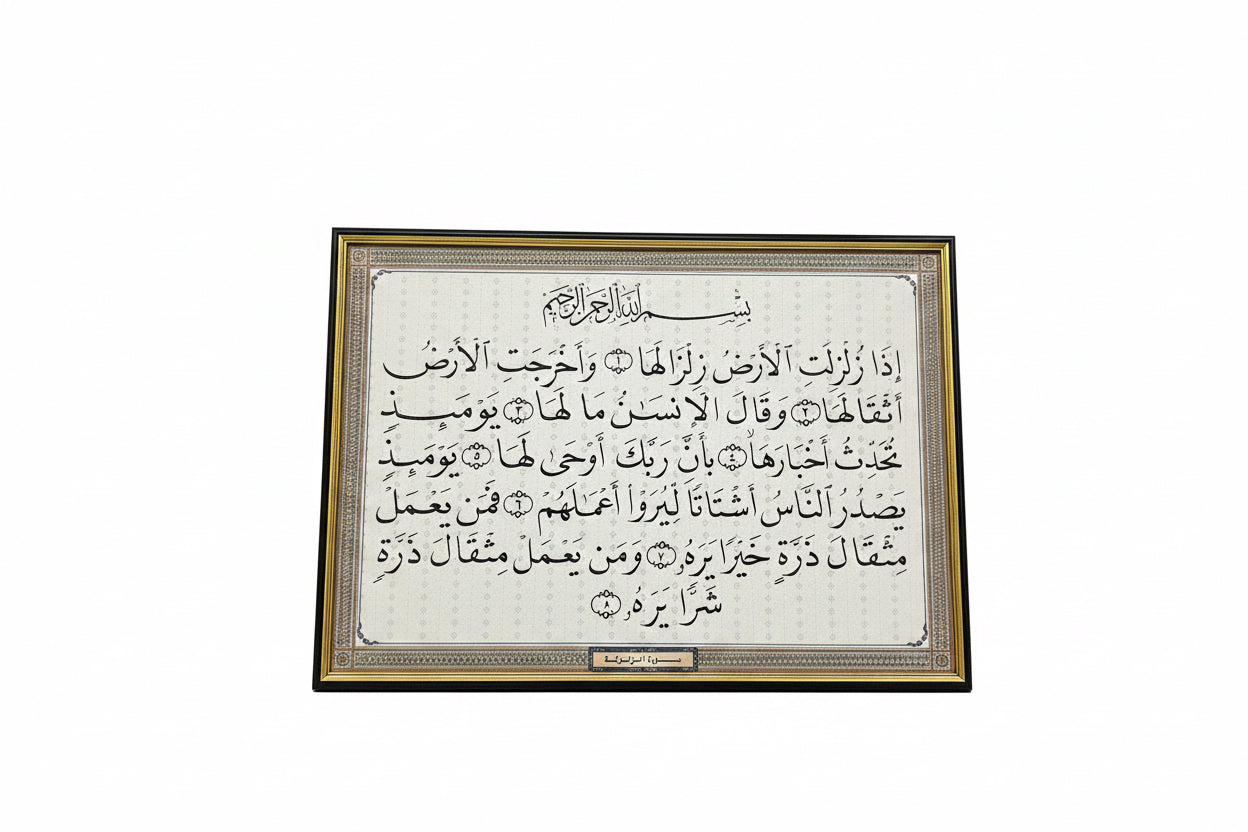 بِسْمِ اللَّهِ الرَّحْمَنِ الرَّحِيمِ
إِذَا زُلْزِلَتِ ٱلْأَرْضُ زِلْزَالَهَا ١ وَأَخْرَجَتِ ٱلْأَرْضُ
أَثْقَالَهَا ٢ وَقَالَ ٱلْإِنسَٰنُ مَا لَهَا ٣ يَوْمَئِذٍ
تُحَدِّثُ أَخْبَارَهَا ٤ بِأَنَّ رَبَّكَ أَوْحَىٰ لَهَا ٥ يَوْمَئِذٍ
يَصْدُرُ ٱلنَّاسُ أَشْتَاتًا لِّيُرَوْا۟ أَعْمَٰلَهُمْ ٦ فَمَن يَعْمَلْ
مِثْقَالَ ذَرَّةٍ خَيْرًا يَرَهُۥ ٧ وَمَن يَعْمَلْ مِثْقَالَ ذَرَّةٍ
شَرًّا يَرَهُۥ ٨
سورة الزلزلة